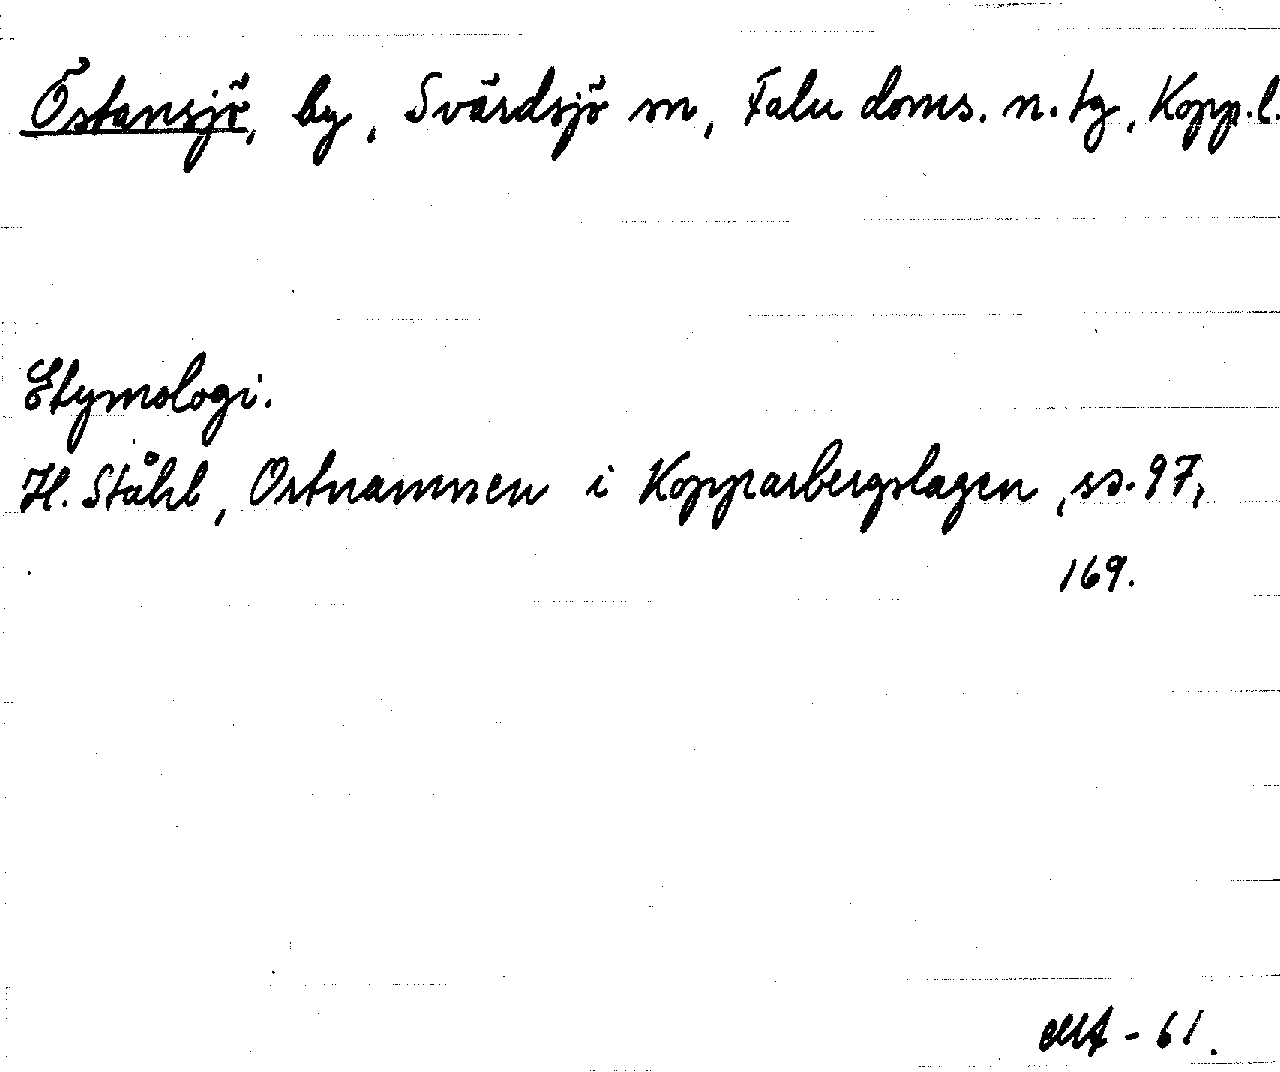 Östansjö, by, Svärdsjö sn, Falu doms. n. tg, Kopp.l.
Etymologi.
H. Ståhl, Ortnamnen i Kopparbergslagen, ss. 97,
169.
- 61.